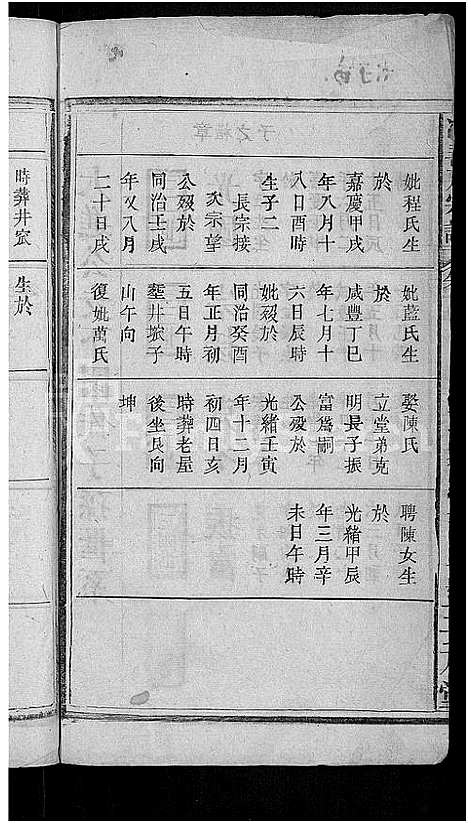 妣程氏生
於
嘉慶甲戌
年八月十
八日酉時
生子二
長宗接
次宗望
公歿於
同治壬戌
年又八月
二十日戌
妣藍氏生
於
咸豐丁巳
年七月十
六日辰時
妣歿於
同治癸酉
年正月初
五日午時
井塝子
山午向
復妣萬氏
娶陳氏
立堂弟克
明長子振
富爲嗣
公歿於
光緒壬寅
年十二月
初四日亥
時葬老屋
後坐艮向
坤
聘陳女生
於
光緒甲辰
年三月辛
未日午時
時葬井
生於